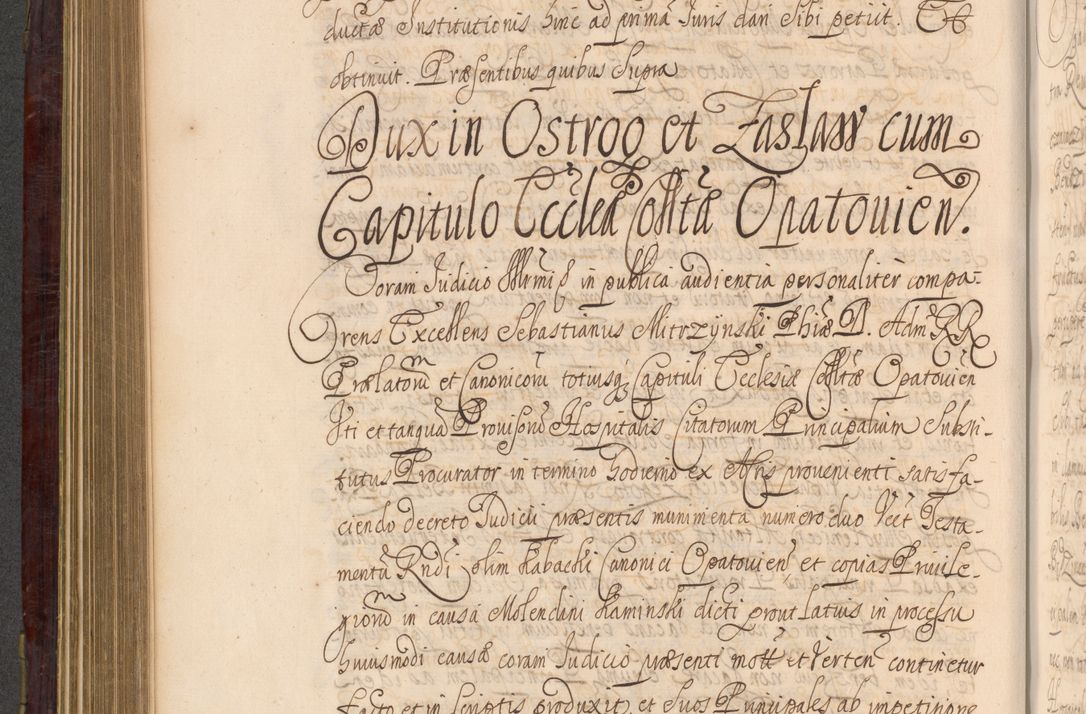 ductæ Institutionis hinc ad primã Iuris dari Sibi petiit. Et
obtinuit. Præsentibus quibus Supra
Dux in Ostrog et Zasław cum
Capitulo Ecclæ Colltæ Opatouien̄.
Coram Iudicio in publica audientia personaliter compa-
rens Excellens Sebastianus Mitrzynski Phiæ D. Adm RR
Prælatorũ et Canonicorũ totiusq Capituli Ecclesiæ Colltæ Opatouien
Iti et tanquã Prouisorũ Hospitalis Citatorum Principalium Substi-
tutus Procurator in termino hodierno ex Aĉtis proueni enti satisfa-
ciendo decreto Iudicii præsentis munimenta numero duo Vcet Testa-
mentũ Rndi olim Kabacki Canonici Opatouien et copias Priuile-
giorũ in causa Molendini Kaminski dicti prout latius in processu
huiusmodi causæ coram Iudicio præsenti mott et Verten continetur
facto et in scriptis produxit, et Suos Principales ab impetitione